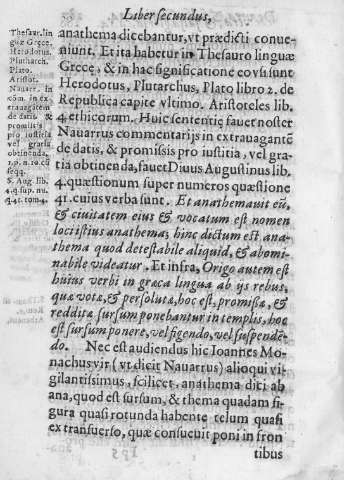 Liber secundus,
Thesaur. lin
guæ Grece.
Herodotus.
Plutharch.
Plato.
Aristot.
Nauarr. in
cōm. in ex
trauagātem
de datis. &
promissis
pro iustitia
vel gratia
obtinenda.
S. Aug. lib.
4. q. sup. nu.
q. 41. tom. 4.
anathema dicebantur, vt prædicti conue-
niunt. Et ita habetur in Thesauro linguæ
Grece, & in hac significatione eo vsi sunt
Herodotus, Plutarchus, Plato libro 2. de
Republica capite vltimo. Aristoteles lib.
4. ethicorum. Huic sententię fauet noster
Nauarrus commentarijs in extrauagantē
de datis, & promissis pro iustitia, vel gra-
tia obtinenda, fauet Diuus Augustinus lib.
4. quæstionum super numeros quæstione
41. cuius verba sunt. Et anathemauit eū,
& ciuitatem eius & vocatum est nomen
loci istius anathema; hinc dictum est ana-
thema quod detestabile aliquid, & abomi-
nabile videatur. Et infra, Origo autem est
huius verbi in græca lingua ab ijs rebus,
quæ vota, & persoluta, hoc est, promissa, &
reddita sursum ponebantur in templis, hoc
est sursum ponere, vel figendo, vel suspendē-
do. Nec est audiendus hic Ioannes Mo-
nachus vir (vt dicit Nauarrus) alioqui vi-
gilantissimus, scilicet, anathema dici ab
ana, quod est sursum, & thema quadam fi-
gura quasi rotunda habente telum quasi
ex transuerso, quæ consueuit poni in fron
tibus